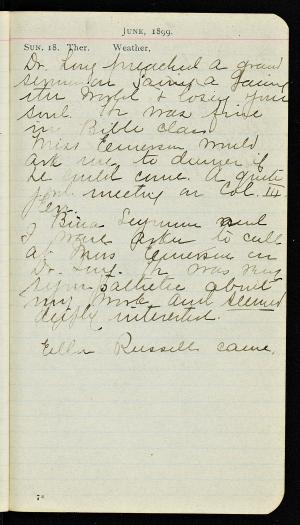 JUNE, 1899.
SUN. 18. Ther. Weather.
Dr. preached a grand
sermon on gaining
the World & losing your
soul. He was fine
in Bible class.
Miss Emerson would
ask me to dinner if
he could come. A quite
good meeting on Col. III
Bina Seymour and
I were asked to call
at Miss Emerson on
Dr. He was very
sympathetic about
my work and seemed
deeply interested.
Ella Russell came.